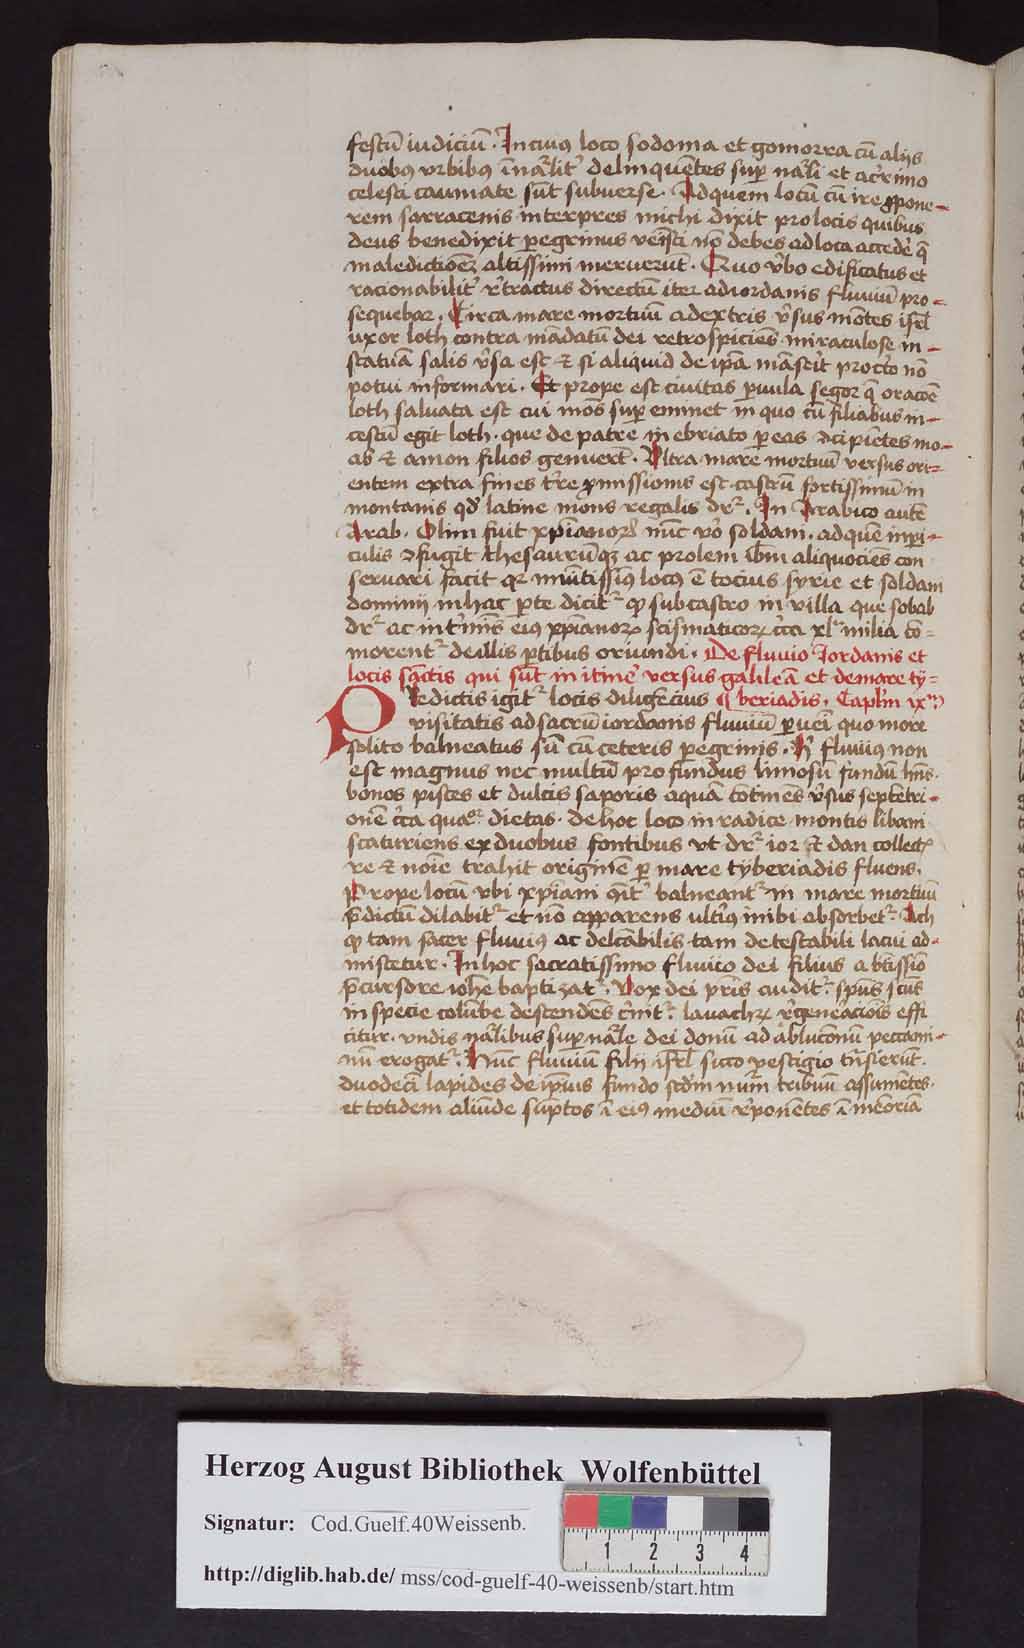 festu᷍ iudiciu᷍. In cuiꝰ loco sodoma et gomorra cu᷍ alijs
duobꝰ vrbibꝰ delinque᷍tes sup᷍ et acrimo
celesti caumate su᷍t subuerse. Ad quem locu᷍ cu᷍ ire ꝓpone-
rem sarracenis interpres michi dixit pro locis quibus
deus benedixit peregrinus no᷍ debes ad loca accede᷍
maledictione᷍ altissimi meruerut᷍. Quo v᷍bo edificatus et
racionabilit᷍ r᷍tractus directu᷍ iter ad iordanis fluuiu᷍ pro-
sequebar. Circa mare mortuu᷍ a dextris v᷍sus mo᷍tes isr᷍l
uxor loth contra ma᷍datu᷍ dei retrospicie᷍s miraculose in-
statua᷍ salis v᷍sa est et si aliquid de ip᷍a no᷍
potui informari. Et prope est ciuitas p᷍uula segor q᷍ oracōe᷍
loth saluata est cui mo᷍s sup᷍ eminet in quo cu᷍ filiabus in-
cestu᷍ egit loth. que de patre in ebriato p᷍ eas ꝯcipie᷍tes mo-
ab et amon filios genuert᷍. Vltra mare mortuu᷍ versus ori-
entem extra fines t᷍re ꝓmissionis est castru᷍ fortissimu᷍ in
montanis qd᷍ latine mons regalis dr᷍. In Arabico aute᷍
Arab. Olim fuit xp᷍ianoꝝ nu᷍c v᷍o soldani. ad que᷍ in p᷍i-
culis ꝯfugit thesauru᷍qꝫ ac prolem ibi᷍ aliquocie᷍s con
seruari facit qꝛ locꝰ e᷍ tocius syrie et soldani
dominij in hac p᷍te dicit᷍ ꝙ sub castro in villa que sobab
dr᷍ ac in t᷍minis eiꝰ xp᷍ianoꝝ scismaticoꝝ c᷍ca xl milia co᷍-
morent᷍ de illis p᷍tibus oriundi. De fluuio Jordanis et
locis sanctis qui su᷍t in itine᷍ versus galilea᷍ et de mare ty-
Predictis igit᷍ locis diligencius ¶ beriadis. Caplm᷍ ix᷍
visitatis ad sacru᷍ iordanis fluuiu᷍ p᷍ueni quo more
solito balneatus su᷍ cu᷍ ceteris p᷍egrinis. H᷍ fluuiꝰ non
est magnus nec multu᷍ profundus limosu᷍ fundu᷍ hn᷍s.
bonos pisces et dulcis saporis aqua᷍ v᷍sus septe᷍tri-
one᷍ c᷍ca quaor᷍ dietas. de hoc loco in radice montis libani
scaturiens ex duobus fontibus vt dr᷍ ior et dan collect᷍
re et noi᷍e trahit origine᷍ p᷍ mare tyberiadis fluens.
Prope locu᷍ vbi xp᷍iani balneant᷍ in mare mortuu᷍
p᷍dictu᷍ dilabit᷍ et no᷍ apparens ulti᷍ꝰ inibi absorbet᷍. Ach
ꝙ tam sacer fluuiꝰ ac delc᷍abilis tam detestabili lacui ad-
miscetur. In hoc sacratissimo fluuio dei filius a
p᷍cursore ioh᷍e baptizat᷍. Vox dei pr᷍is audit᷍. spu᷍s sc᷍us
in specie colu᷍be descende᷍s c᷍nit᷍. r᷍generacio᷍is effi
citur. vndis na᷍libus sup᷍na᷍le dei donu᷍ ad ablucōnu᷍ peccami-
nu᷍ erogat᷍. Hu᷍c fluuiu᷍ filij isr᷍l sicco vestigio tr᷍sierut᷍.
duodeci᷍ lapides de ip᷍ius fundo scd᷍m num᷍ tribuu᷍ assume᷍tes.
et totidem aliu᷍de su᷍ptos i᷍ eiꝰ mediu᷍ r᷍pone᷍tes i᷍ me᷍oria᷍
Herzog August Bibliothek Wolfenbüttel
Signatur: Cod.Guelf.40Weissenb.
1 2 3 4
http://diglib.hab.de/ mss/cod-guelf-40-weissenb/start.htm